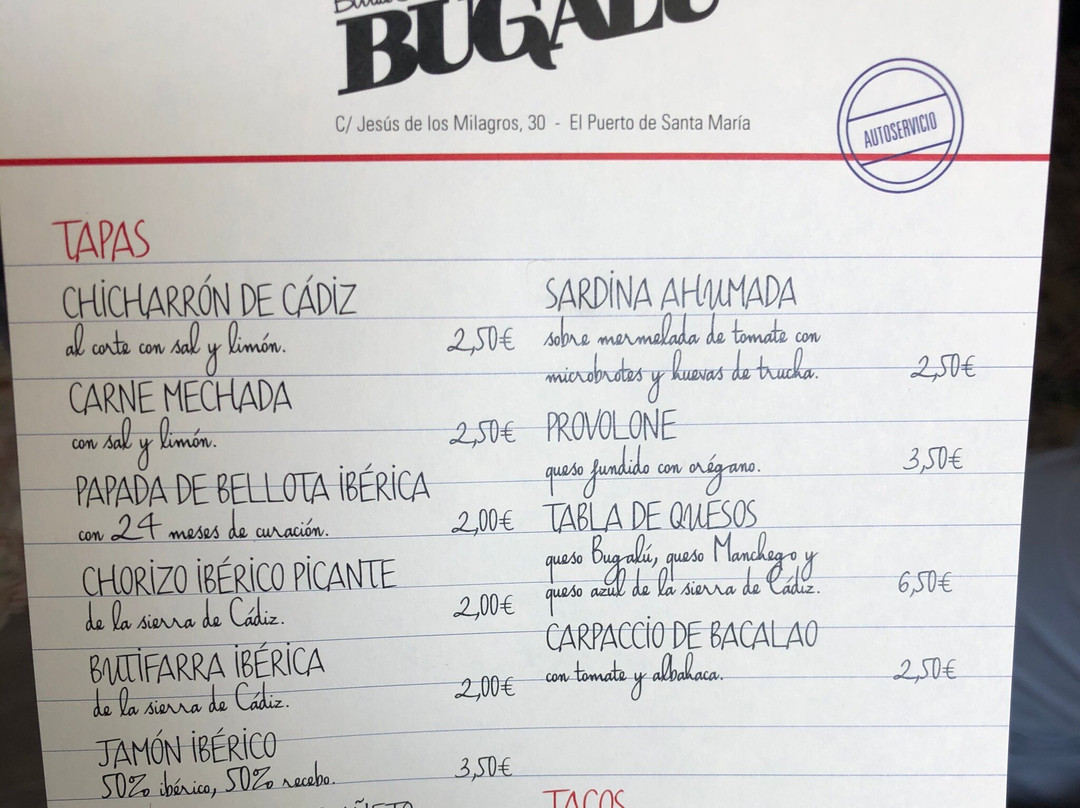 BUGALÚ
C/ Jesús de los Milagros, 30 - El Puerto de Santa María
AUTOSERVICIO
TAPAS
CHICHARRÓN DE CÁDIZ
al corte con sal y limón. 2,50€
CARNE MECHADA
con sal y limón. 2,50€
PAPADA DE BELLOTA IBÉRICA
con 24 meses de curación. 2,00€
CHORIZO IBÉRICO PICANTE
de la sierra de Cádiz. 2,00€
BUTIFARRA IBÉRICA
de la sierra de Cádiz. 2,00€
JAMÓN IBÉRICO
50% ibérico, 50% recebo. 3,50€
SARDINA AHUMADA
sobre mermelada de tomate con
microbrotes y huevas de trucha. 2,50€
PROVOLONE
queso fundido con orégano. 3,50€
TABLA DE QUESOS
queso Bugalú, queso Manchego y
queso azul de la sierra de Cádiz. 6,50€
CARPACCIO DE BACALAO
con tomate y albahaca. 2,50€
TACOS